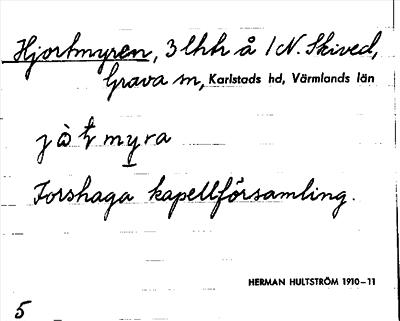 Hjortmyren, 3 lhh å 1 N. Skived,
Grava sn, Karlstads hd, Värmlands län
myra
Forshaga kapellförsamling.
HERMAN HULTSTRÖM 1910–11
5